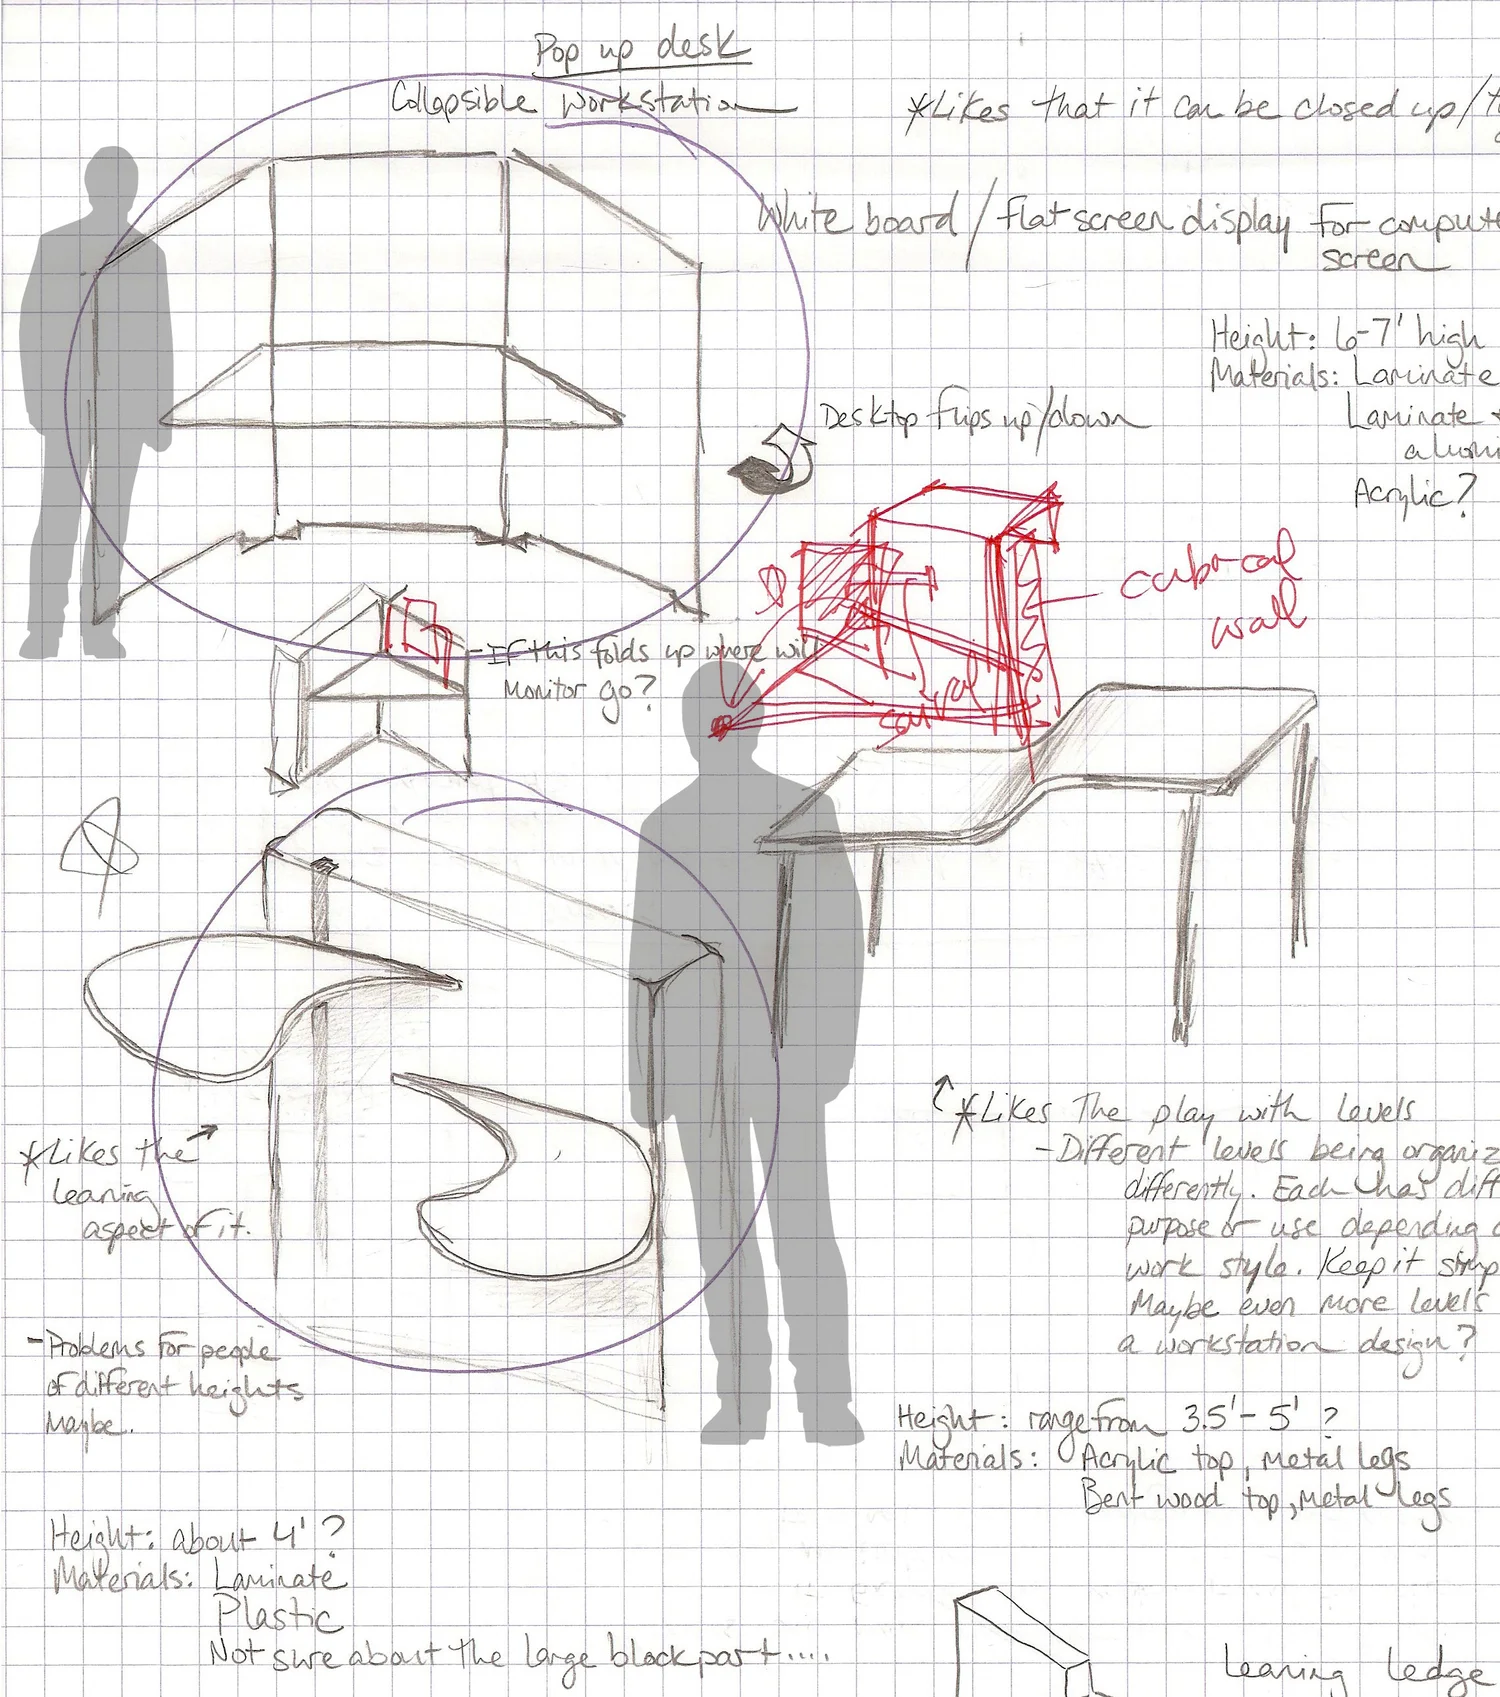 Pop up desk
Collapsible workstation
*Likes that it can be closed up/
White board / flat screen display for compute
screen
Height: 6-7' high
Materials: Laminate
Laminate +
alumi
Acrylic?
Desktop flips up/down
- If this folds up where will
monitor go?
wall
*Likes the
leaning
aspect of it.
- Problems for people
of different heights
maybe.
Height: about 4' ?
Materials: Laminate
Plastic
Not sure about the large block part.....
*Likes the play with levels
- Different levels being organiz
differently. Each has diff
purpose or use depending o
work style. Keep it simp
Maybe even more levels
a workstation design?
Height: range from 3.5'- 5' ?
Materials: Acrylic top, metal legs
Bent wood top, metal legs
leaning ledge